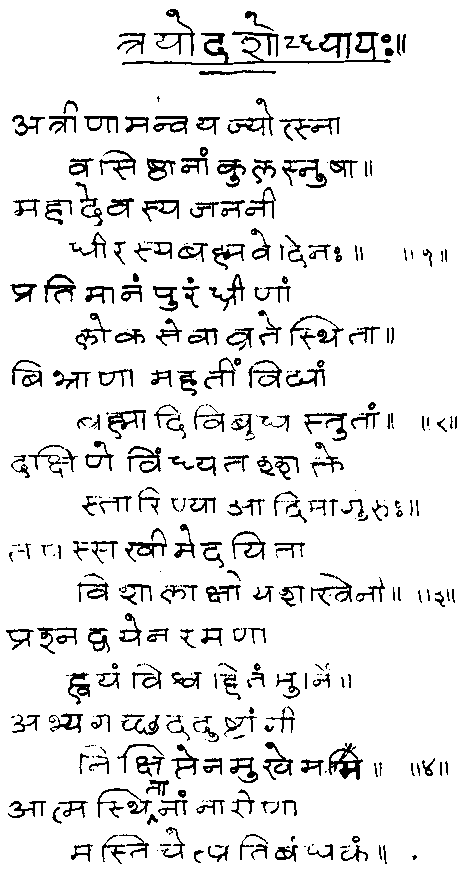 त्रयोदशोऽध्यायः॥
अत्रीणामन्वयज्योत्स्ना
वसिष्ठानां कुलस्नुषा॥
महादेवस्य जननी
धीरस्य ब्रह्मवेदिनः॥ ॥१॥
प्रतिमानं पुरंध्रीणां
लोकसेवाव्रते स्थिता॥
बिभ्राणा महतीं विद्यां
ब्रह्मादिविबुधस्तुतां॥ ॥२॥
दक्षिणे विंध्यतश्शक्ते
स्तारिण्या आदिमा गुरुः॥
तपस्सखी मे दयिता
विशालाक्षी यशस्विनी॥ ॥३॥
प्रश्नद्वयेन रमणा
ह्वयं विश्वहितं मुनिं॥
अभ्यगच्छददुष्टांगी
निक्षिप्तेन मुखे मम॥ ॥४॥
आत्मस्थितानां नारीणा
मस्ति चेत्प्रतिबंधकं॥